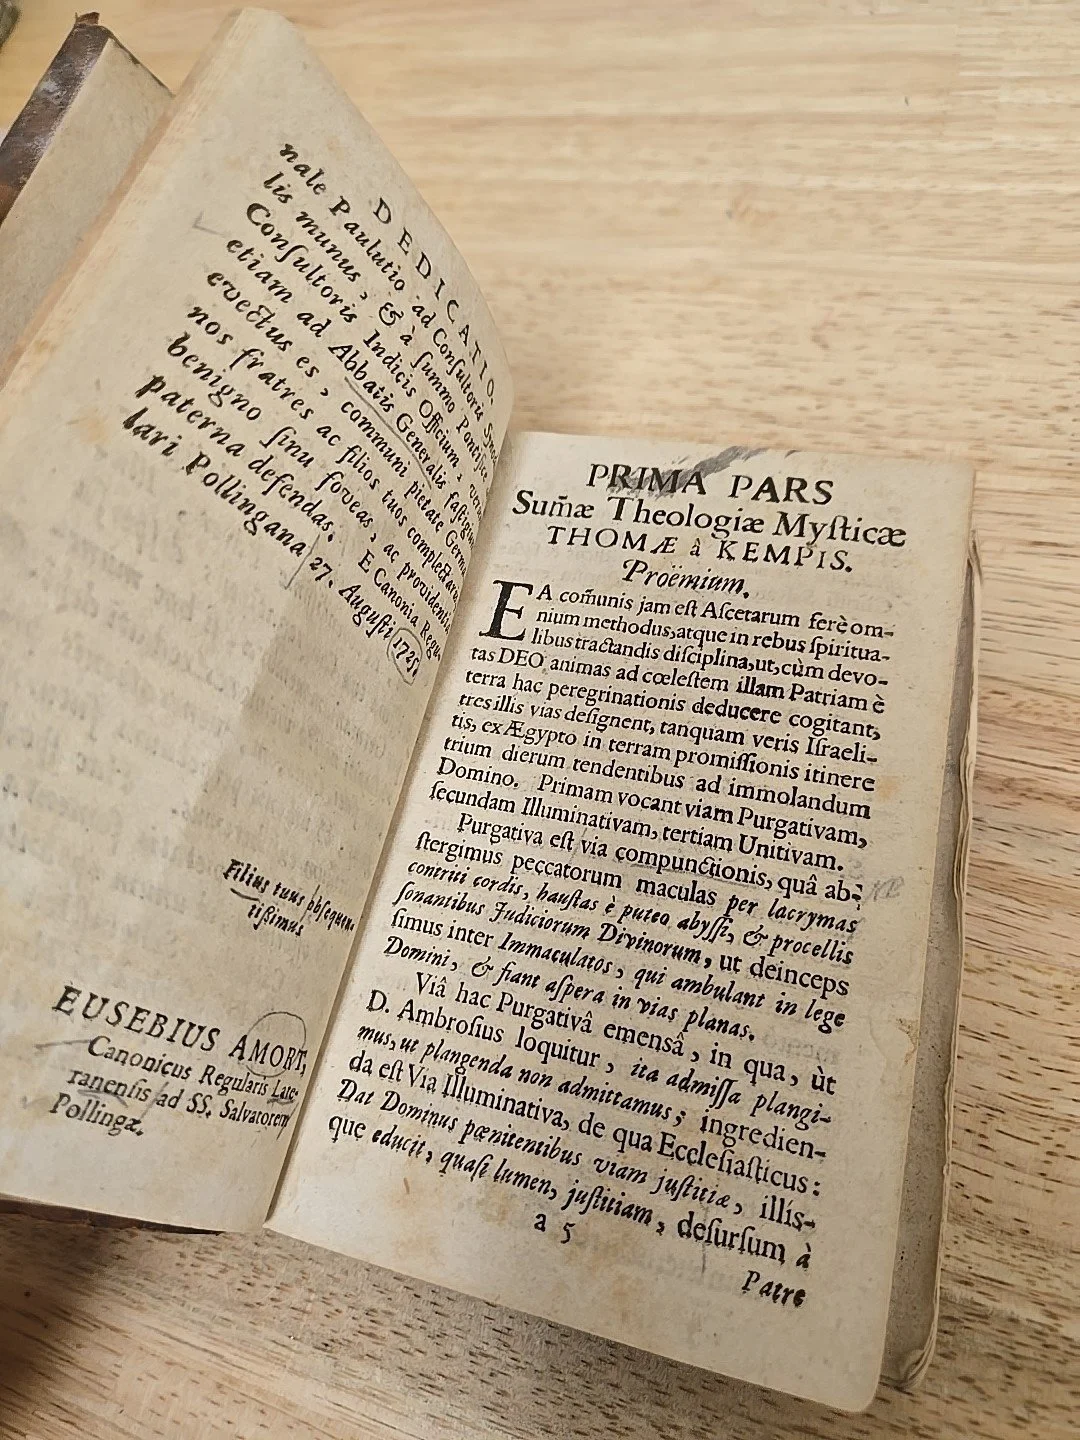 DEDICATIO.
nale Paulutio ad Consultoris
lis munus, & à ſummo Pontifice
Conſultoris Indicis Officium,
etiam ad Abbatis Generalis faſtigium
evectus es, communi pietate
nos fratres ac filios tuos
benigno ſinu foveas, ac
paterna defendas. E Canonia
lari Pollingana 27. Auguſti 1725.
Filius tuus obſequen-
tiſſimus
EUSEBIUS AMORT,
Canonicus Regularis Late-
ranenſis ad SS. Salvatorem
Pollingæ.
PRIMA PARS
Sum̃æ Theologiæ Myſticæ
THOMÆ â KEMPIS.
Proëmium.
EA com̃unis jam eſt Aſcetarum ferè om-
nium methodus, atque in rebus ſpiritua-
libus tractandis diſciplina, ut, cùm devo-
tas DEO animas ad cœleſtem illam Patriam è
terra hac peregrinationis deducere cogitant,
tres illis vias deſignent, tanquam veris Iſraeli-
tis, ex Ægypto in terram promiſſionis itinere
trium dierum tendentibus ad immolandum
Domino. Primam vocant viam Purgativam,
ſecundam Illuminativam, tertiam Unitivam.
Purgativa eſt via compunctionis, quâ ab-
ſtergimus peccatorum maculas per lacrymas
contriti cordis, hauſtas è puteo abyſſi, & procellis
ſonantibus Judiciorum Divinorum, ut deinceps
ſimus inter Immaculatos, qui ambulant in lege
Domini, & fiant aſpera in vias planas.
Viâ hac Purgativâ emensâ, in qua, ùt
D. Ambroſius loquitur, ita admiſſa plangi-
mus, ut plangenda non admittamus; ingredien-
da eſt Via Illuminativa, de qua Eccleſiaſticus:
Dat Dominus pœnitentibus viam juſtitiæ, illíſ-
que educit, quaſi lumen, juſtitiam, deſurſum à
a 5
Patre